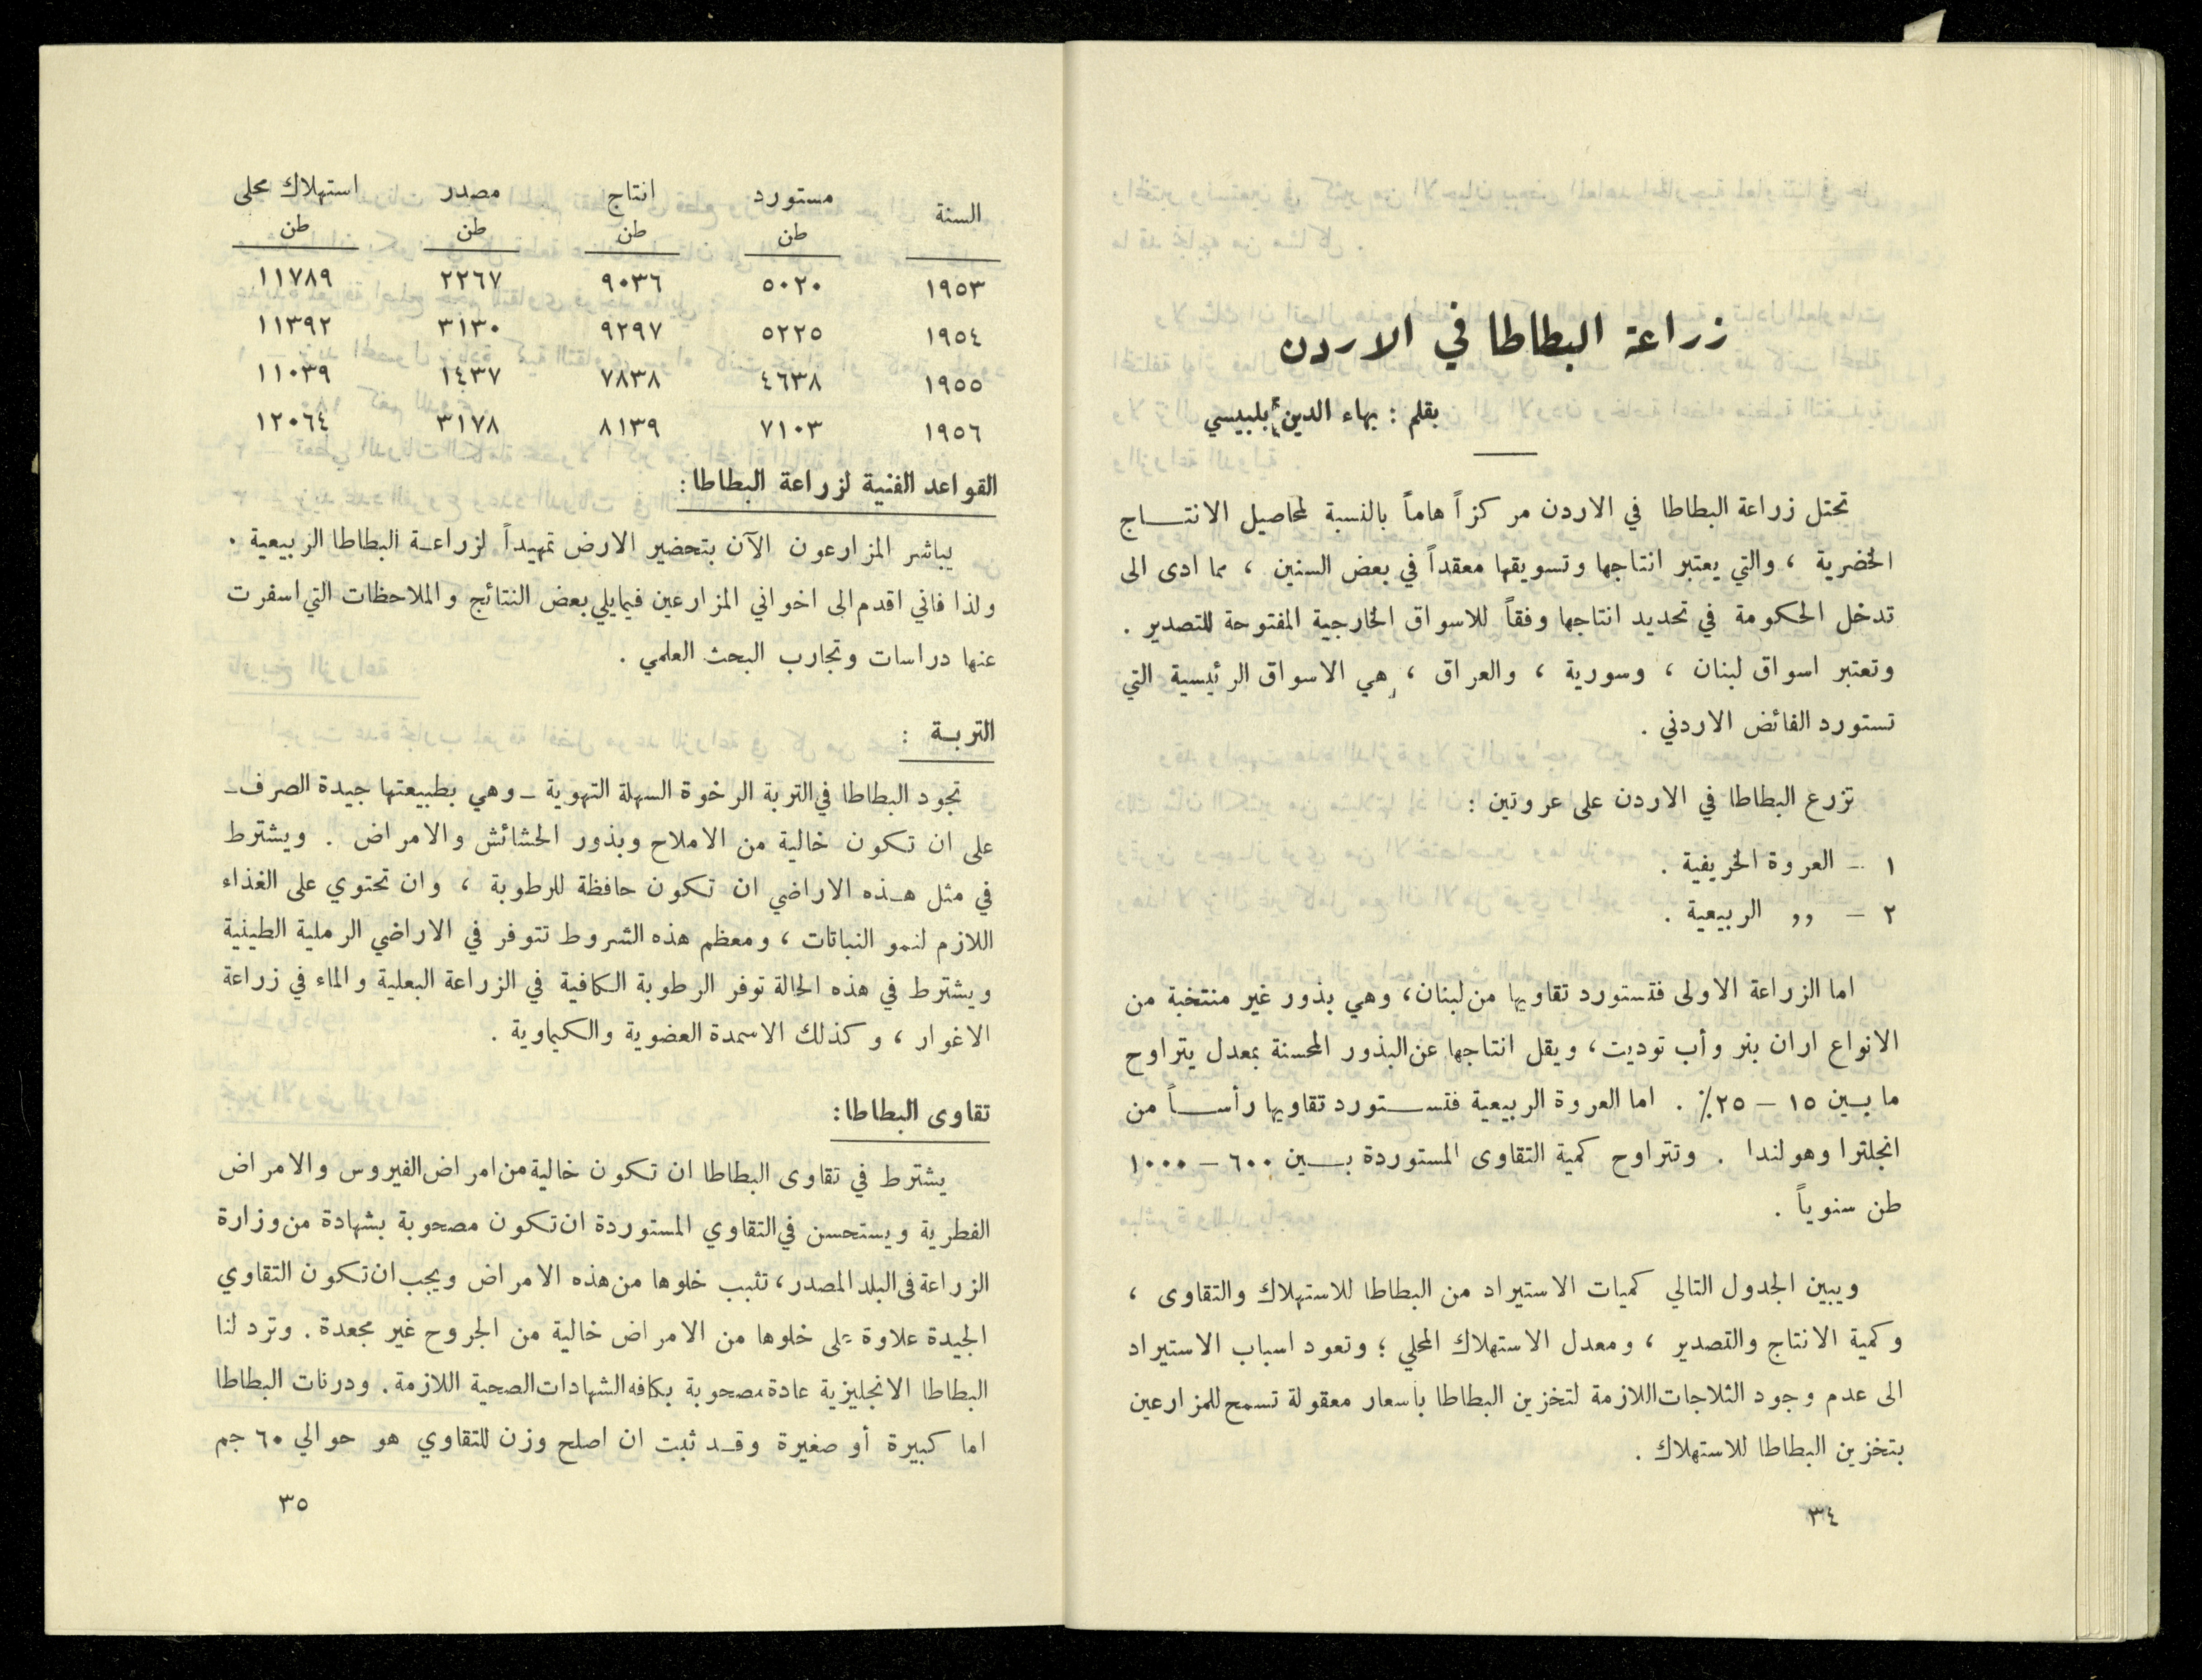 زراعة البطاطا في الاردن
بقلم : بهاء الدين بلبيسي
تحتل زراعة البطاطا في الاردن مركزاً هاماً بالنسبة لمحاصيل الانتـــاج
الخضرية ، والتي يعتبر انتاجها وتسويقها معقداً في بعض السنين ، مما ادى الى
تدخل الحكومة في تحديد انتاجها وفقاً للاسواق الخارجية المفتوحة للتصدير .
وتعتبر اسواق لبنان ، وسورية ، والعراق ، هي الاسواق الرئيسية التي
تستورد الفائض الاردني .
تزرع البطاطا في الاردن على عروتين :
١ – العروة الخريفية .
٢ – ,, الربيعية .
اما الزراعة الاولى فتستورد تقاويها من لبنان ، وهي بذور غير منتخبة من
الانواع اران بنر وأب توديت ، ويقل انتاجها عن البذور المحسنة بمعدل يتراوح
ما بــين ١٥ – ٢٥٪ . اما العروة الربيعية فتســتورد تقاويها رأســاً من
انجلترا وهولندا . وتتراوح كمية التقاوى المستوردة بــين ٦٠٠ – ١٠٠٠
طن سنوياً .
ويبين الجدول التالي كميات الاستيراد من البطاطا للاستهلاك والتقاوى ،
وكمية الانتاج والتصدير ، ومعدل الاستهلاك المحلي ؛ وتعود اسباب الاستيراد
الى عدم وجود الثلاجات اللازمة لتخزين البطاطا باسعار معقولة تسمح للمزارعين
بتخزين البطاطا للاستهلاك .
٣٤
السنة مستورد انتاج مصدر استهلاك محلى
طن طن طن طن
١٩٥٣ ٥٠٢٠ ٩٠٣٦ ٢٢٦٧ ١١٧٨٩
١٩٥٤ ٥٢٢٥ ٩٢٩٧ ٣١٣٠ ١١٣٩٢
١٩٥٥ ٤٦٣٨ ٧٨٣٨ ١٤٣٧ ١١٠٣٩
١٩٥٦ ٧١٠٣ ٨١٣٩ ٣١٧٨ ١٢٠٦٤
القواعد الفنية لزراعة البطاطا :
يباشر المزارعون الآن بتحضير الارض تمهيداً لزراعــة البطاطا الربيعية .
ولذا فاني اقدم الى اخواني المزارعين فيمايلي بعض النتائج والملاحظات التي اسفرت
عنها دراسات وتجارب البحث العلمي .
التربــة :
تجود البطاطا في التربة الرخوة السهلة التهوية – وهي بطبيعتها جيدة الصرف –
على ان تكون خالية من الاملاح وبذور الحشائش والامراض . ويشترط
في مثل هــذه الاراضي ان تكون حافظة للرطوبة ، وان تحتوي على الغذاء
اللازم لنمو النباتات ، ومعظم هذه الشروط تتوفر في الاراضي الرملية الطينية
ويشترط في هذه الحالة توفر الرطوبة الكافية في الزراعة البعلية والماء في زراعة
الاغوار ، وكذلك الاسمدة العضوية والكيماوية .
تقاوى البطاطا :
يشترط في تقاوى البطاطا ان تكون خالية من امراض الفيروس والامراض
الفطرية ويستحسن في التقاوي المستوردة ان تكون مصحوبة بشهادة من وزارة
الزراعة فى البلد المصدر ، تثبب خلوها من هذه الامراض ويجب ان تكون التقاوي
الجيدة علاوة على خلوها من الامراض خالية من الجروح غير مجعدة . وترد لنا
البطاطا الانجليزية عادة مصحوبة بكافه الشهادات الصحية اللازمة . ودرنات البطاطا
اما كبيرة أو صغيرة وقــد ثبت ان اصلح وزن للتقاوي هو حوالي ٦٠ جم
٣٥